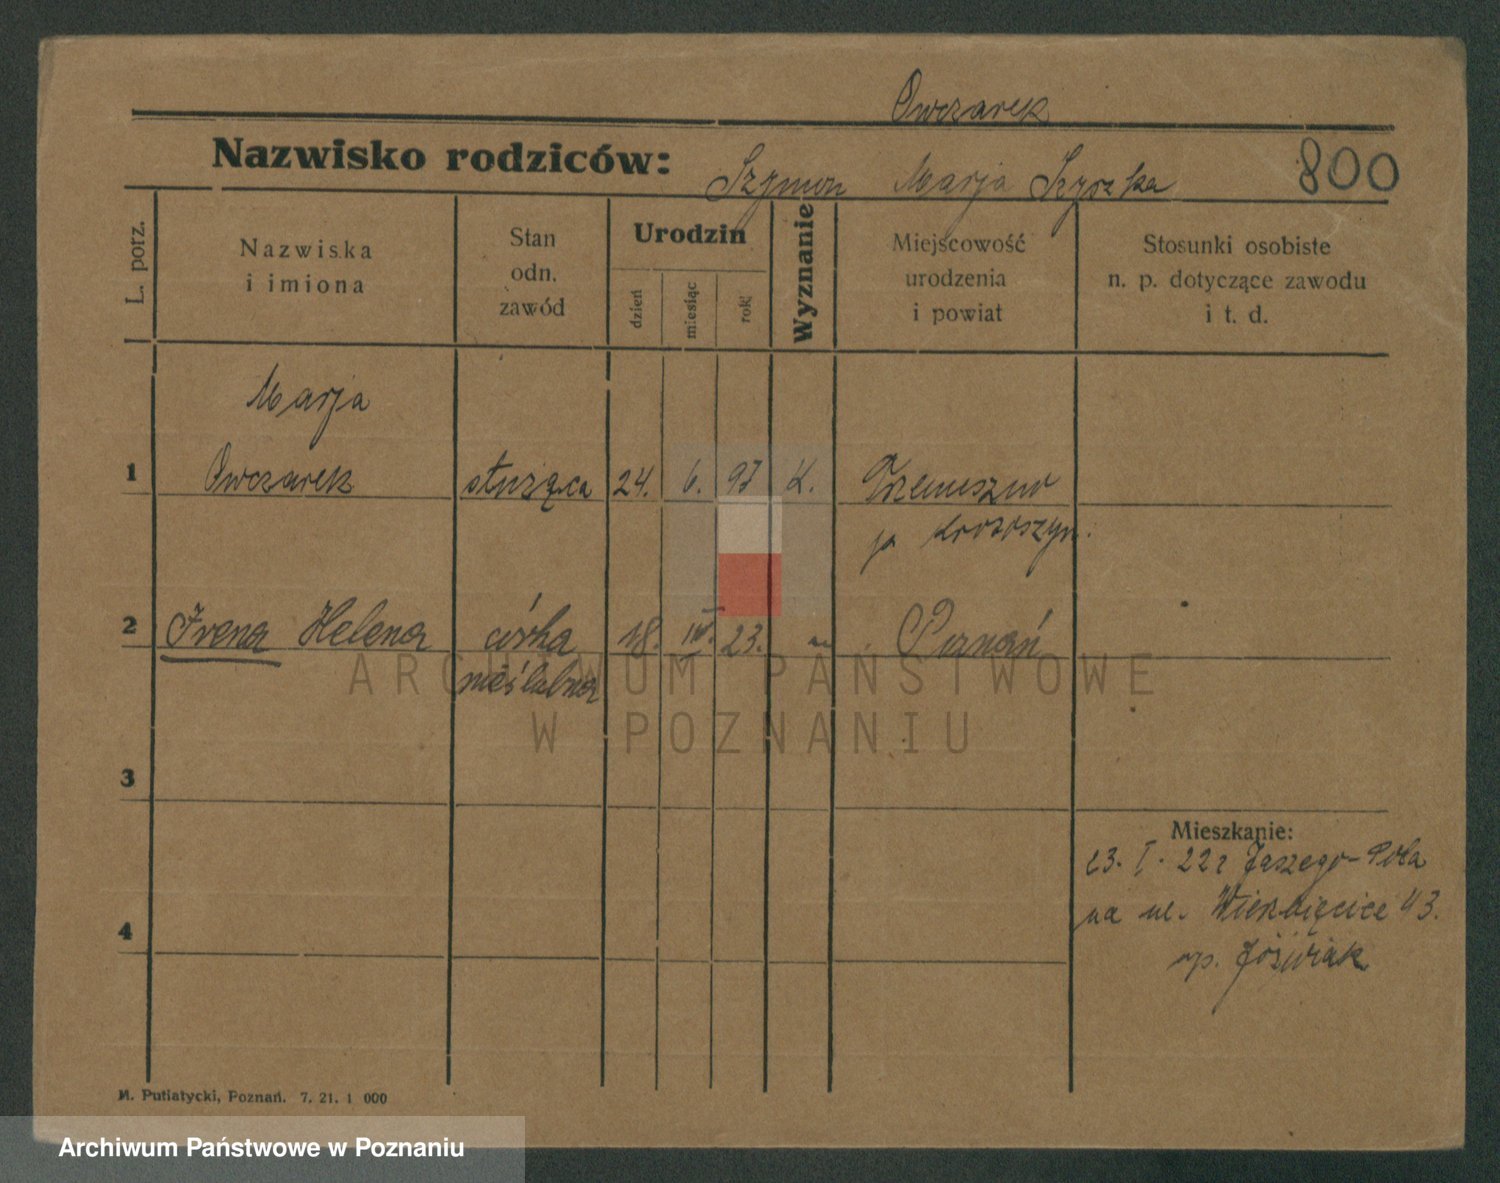 Owczarek
Nazwisko rodziców: Szymon Marja Szyszka 800
L. porz.
Nazwiska
i imiona
Stan
odn.
zawód
Urodzin
dzień
miesiąc
rok
Wyznanie
Miejscowość
urodzenia
i powiat
Stosunki osobiste
n. p. dotyczące zawodu
i t. d.
Marja
1 Owczarek służąca 24. 6. 97 K.
2 Irena Helena córka 18. 23. Poznań
nieślubna
ARCHIWUM PAŃSTWOWE
W POZNANIU
3
Mieszkanie:
23. I. 22 z Jaszego-Pola
na ul. Wierzbięcice 43.
4
M. Putiatycki, Poznań. 7. 21. 1 000
Archiwum Państwowe w Poznaniu